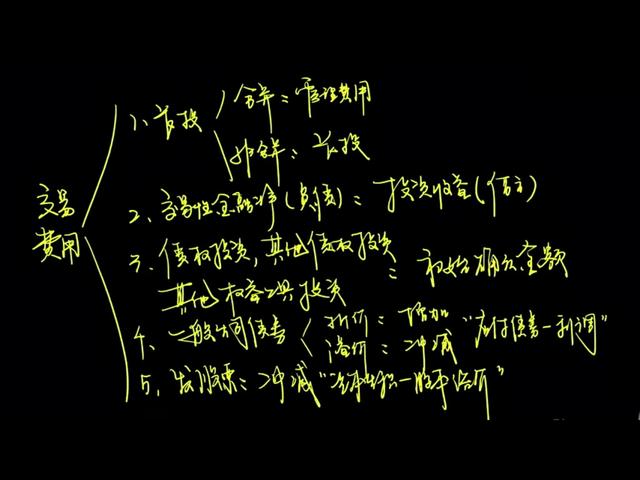 交易
费用
1、长投
合并：管理费用
非合并：长投
2、交易性金融资产（负债）：投资收益（借方）
3、债权投资，其他债权投资
其他权益工具投资
：初始确认金额
4、一般公司债券
折价：增加
溢价：冲减
“应付债券—利调”
5、发股票：冲减“资本公积—股本溢价”